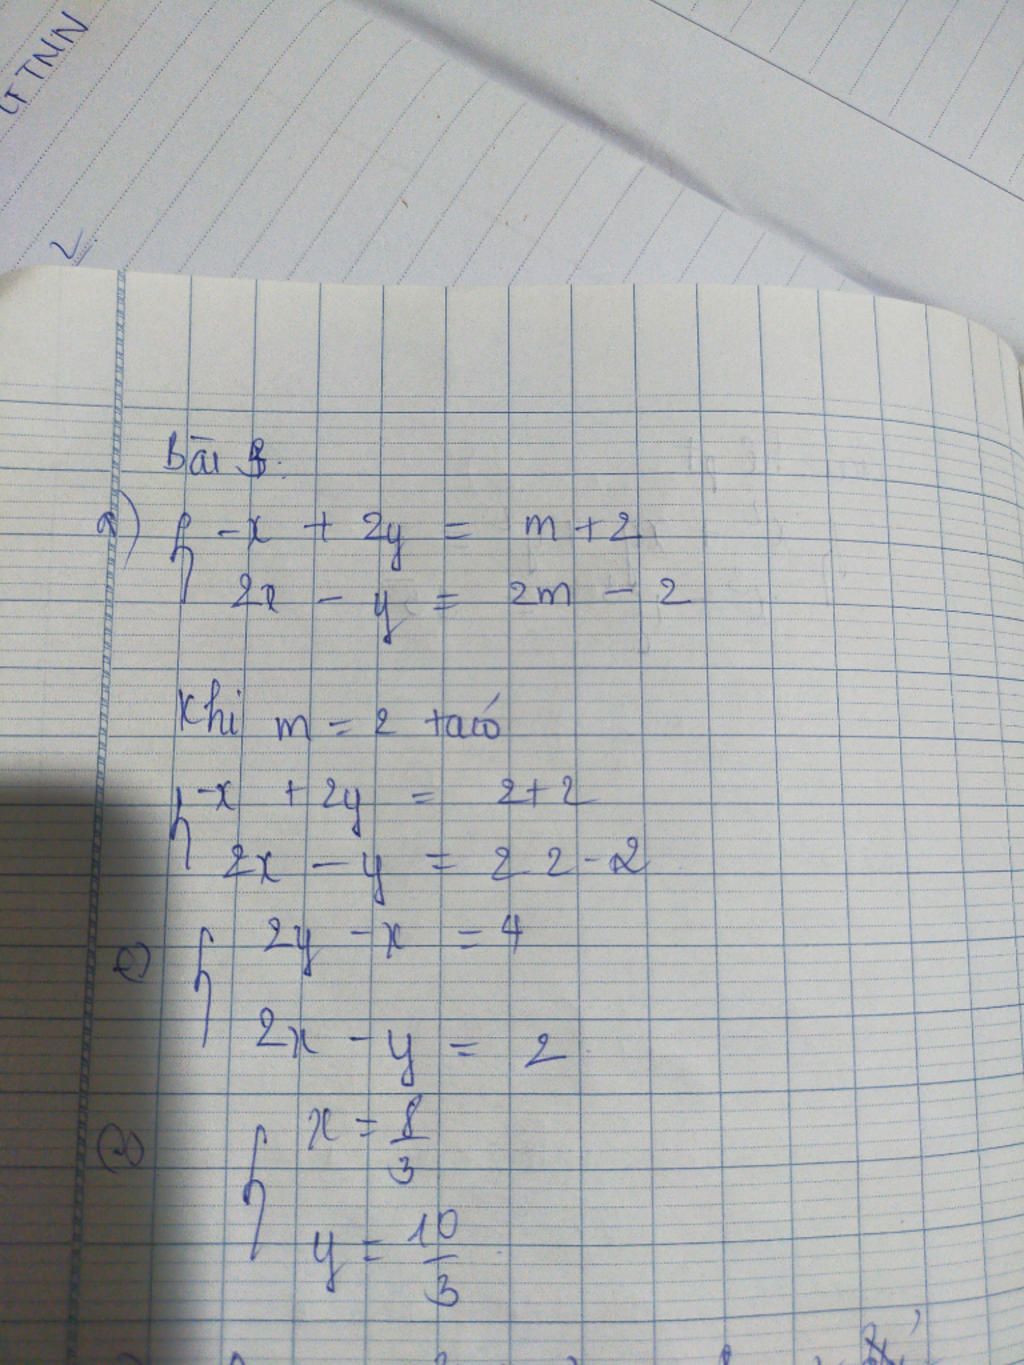 GTTNN
2
Bài 3.
a) { -x + 2y = m + 2
2x - y = 2m - 2
Khi m = 2 ta có
{ -x + 2y = 2+2
2x - y = 2 2 - 2
{ 2y - x = 4
2x - y = 2
{ x = 8/3
y = 10/3